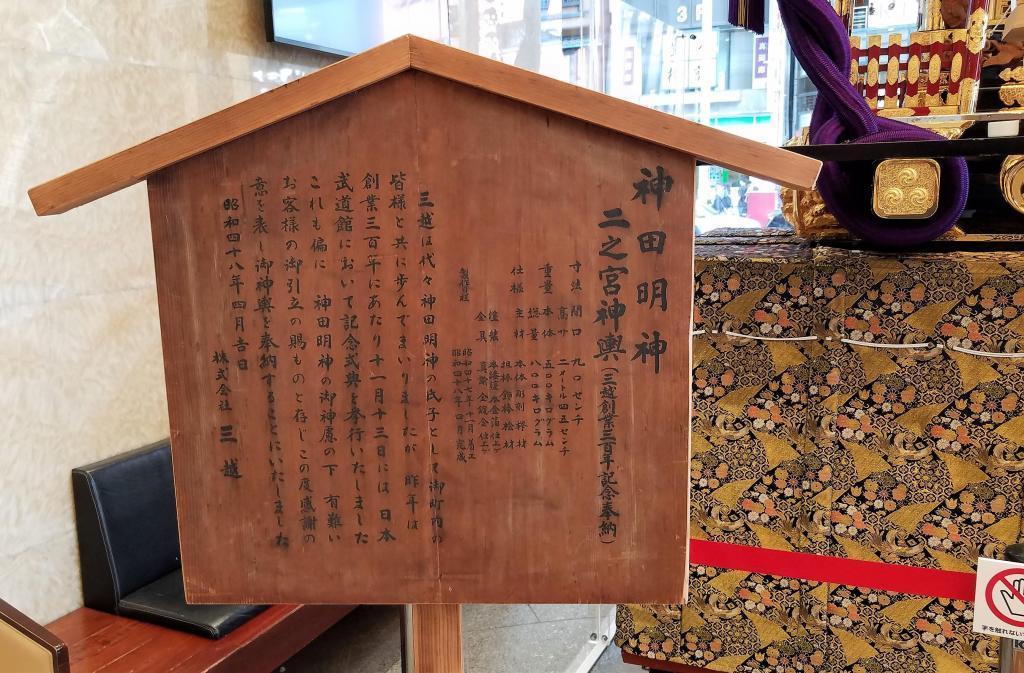 神田明神
二之宮神輿(三越創業三百年記念奉納)
寸法 間口 九〇センチ
高サ 二メートル四五センチ
重量 本体 五〇〇キログラム
総量 八〇〇キログラム
仕様 主材 本体彫刻 欅材
担棒飾棒 桧材
塗装 本漆塗本金箔仕上ゲ
金具 真鍮全鍍金仕上ゲ
昭和四十七年十一月着工
昭和四十八年四月完成
三越は代々神田明神の氏子として御町内の
皆様と共に歩んでまいりましたが 昨年は
創業三百年にあたり十一月十三日には 日本
武道館において記念式典を挙行いたしました
これも偏に 神田明神の御神慮の下 有難い
お客様の御引立の賜ものと存じこの度感謝の
意を表し御神輿を奉納することにいたしました
昭和四十八年四月吉日
株式会社 三越
手を触れない